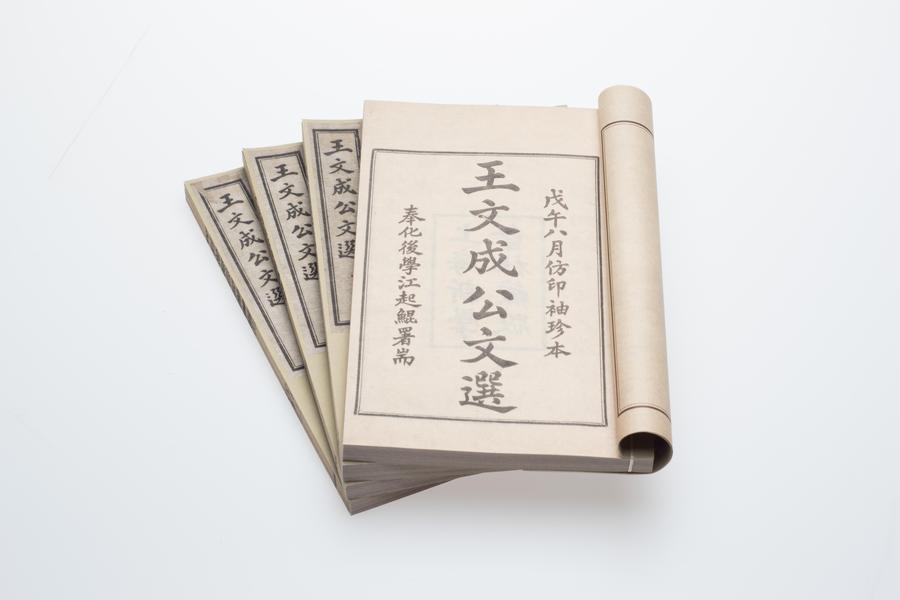 戊午八月仿印袖珍本
王文成公文選
奉化後學江起鯤署耑
王文成公文選
王文成公文選
王文成公文選